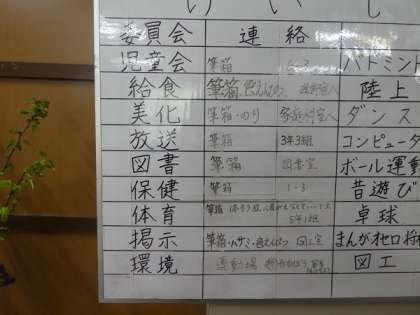 けいじ
委員会 連絡
児童会 筆箱 1-3 バドミント
給食 筆箱 色えんぴつ 陸上
美化 筆箱・のり 家庭科室へ ダンス
放送 筆箱 3年3組 コンピュータ
図書 筆箱 図書室 ボール運動
保健 筆箱 1-3 昔遊び
体育 筆箱 5年1組 卓球
掲示 筆箱・ハサミ・色えんぴつ 図工室 まんがオセロ将
環境 運動場 図工